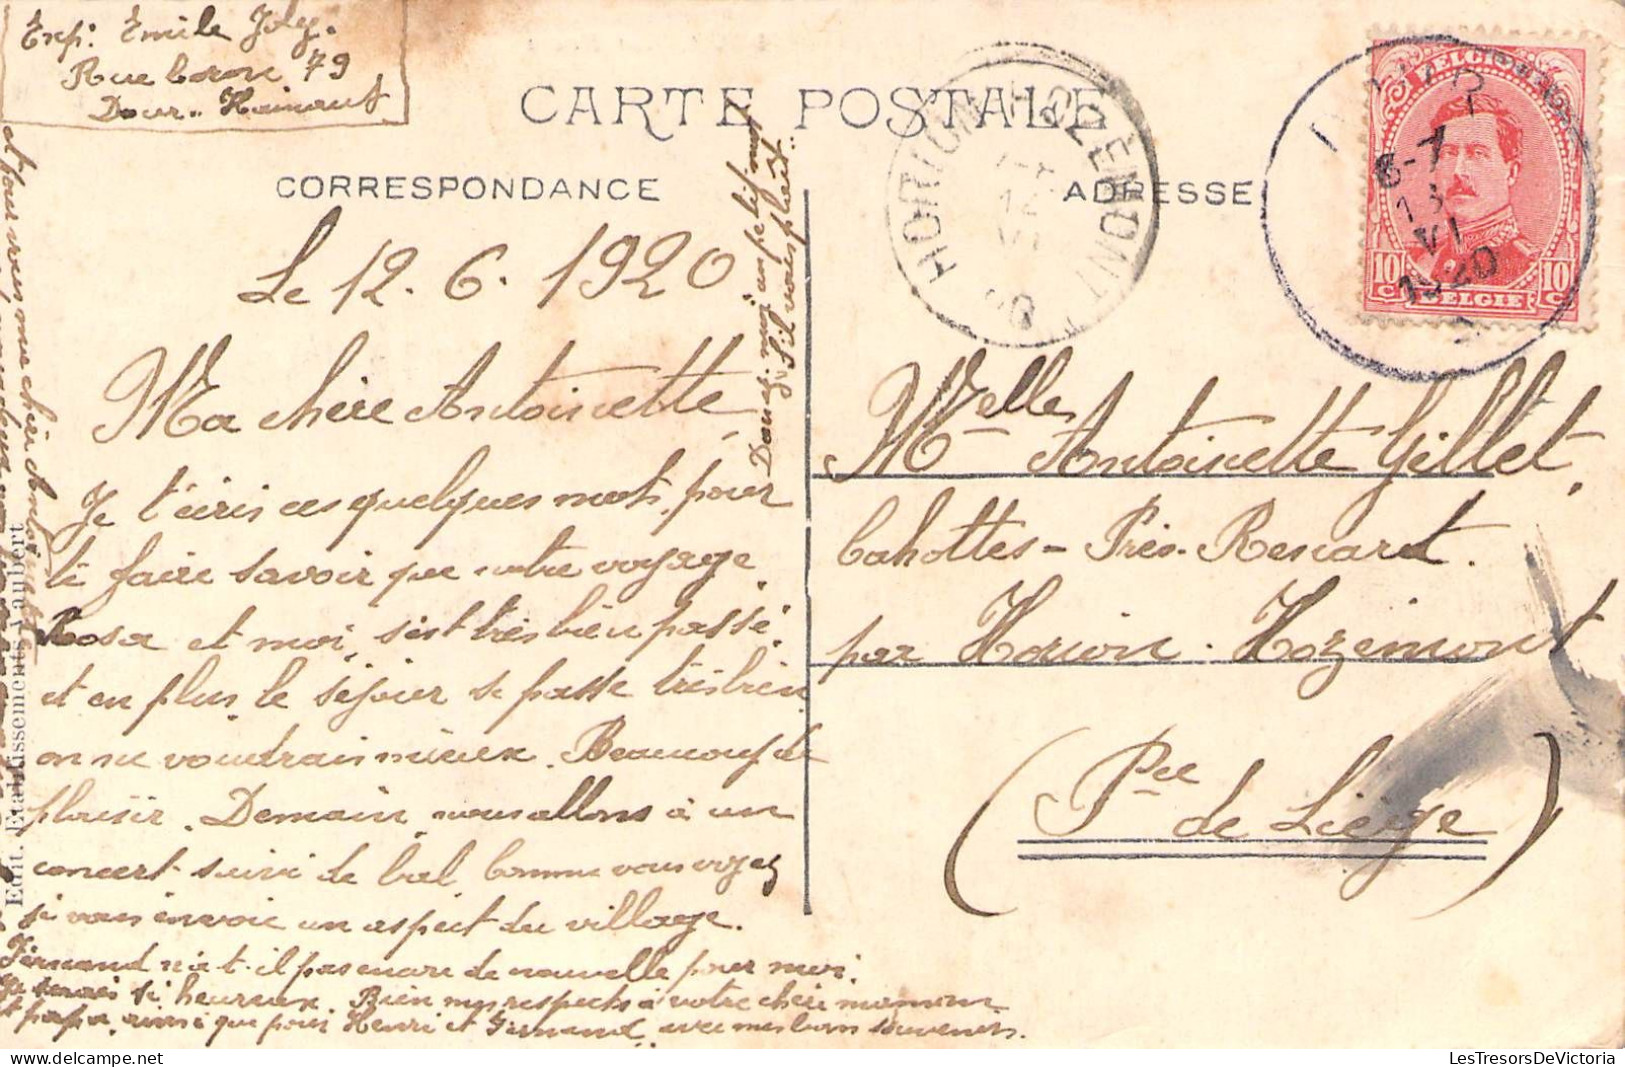 Exp: Emile Joly.
Rue Coron 79
Dour.. Hainaut
CARTE POSTALE
CORRESPONDANCE
ADRESSE
HORION HOZÉMONT
BELGIQUE
8-7
13
VI
1920
10 C
10 C
BELGIE
Le 12. 6. 1920
Ma chère Antoinette,
Je t'écris ces quelques mots, pour
te faire savoir que notre voyage
Rosa et moi, s'est très bien passé.
et en plus, le séjour se passe très bien
on ne voudrais mieux. Beaucoup de
plaisir. Demain, nous allons à un
concert suivi de bal, comme vous voyez
je vous envoie un aspect du village.
Fernand n'a-t-il pas encore de nouvelle pour moi.
Je serais si heureux. Bien mes respects à votre chère maman
et papa, ainsi que pour Henri et Fernand, avec mes bons souvenirs.
et pour vous ma chère Antoinette
Donnez-moi un petit mot
S'il vous plaît..
Melle Antoinette Gillet,
Cahottes - Près - Rescart.
par Horion - Hozémont
(Pce de Liège)
Edit. Etablissements Vaubert
LesTresorsDeVictoria